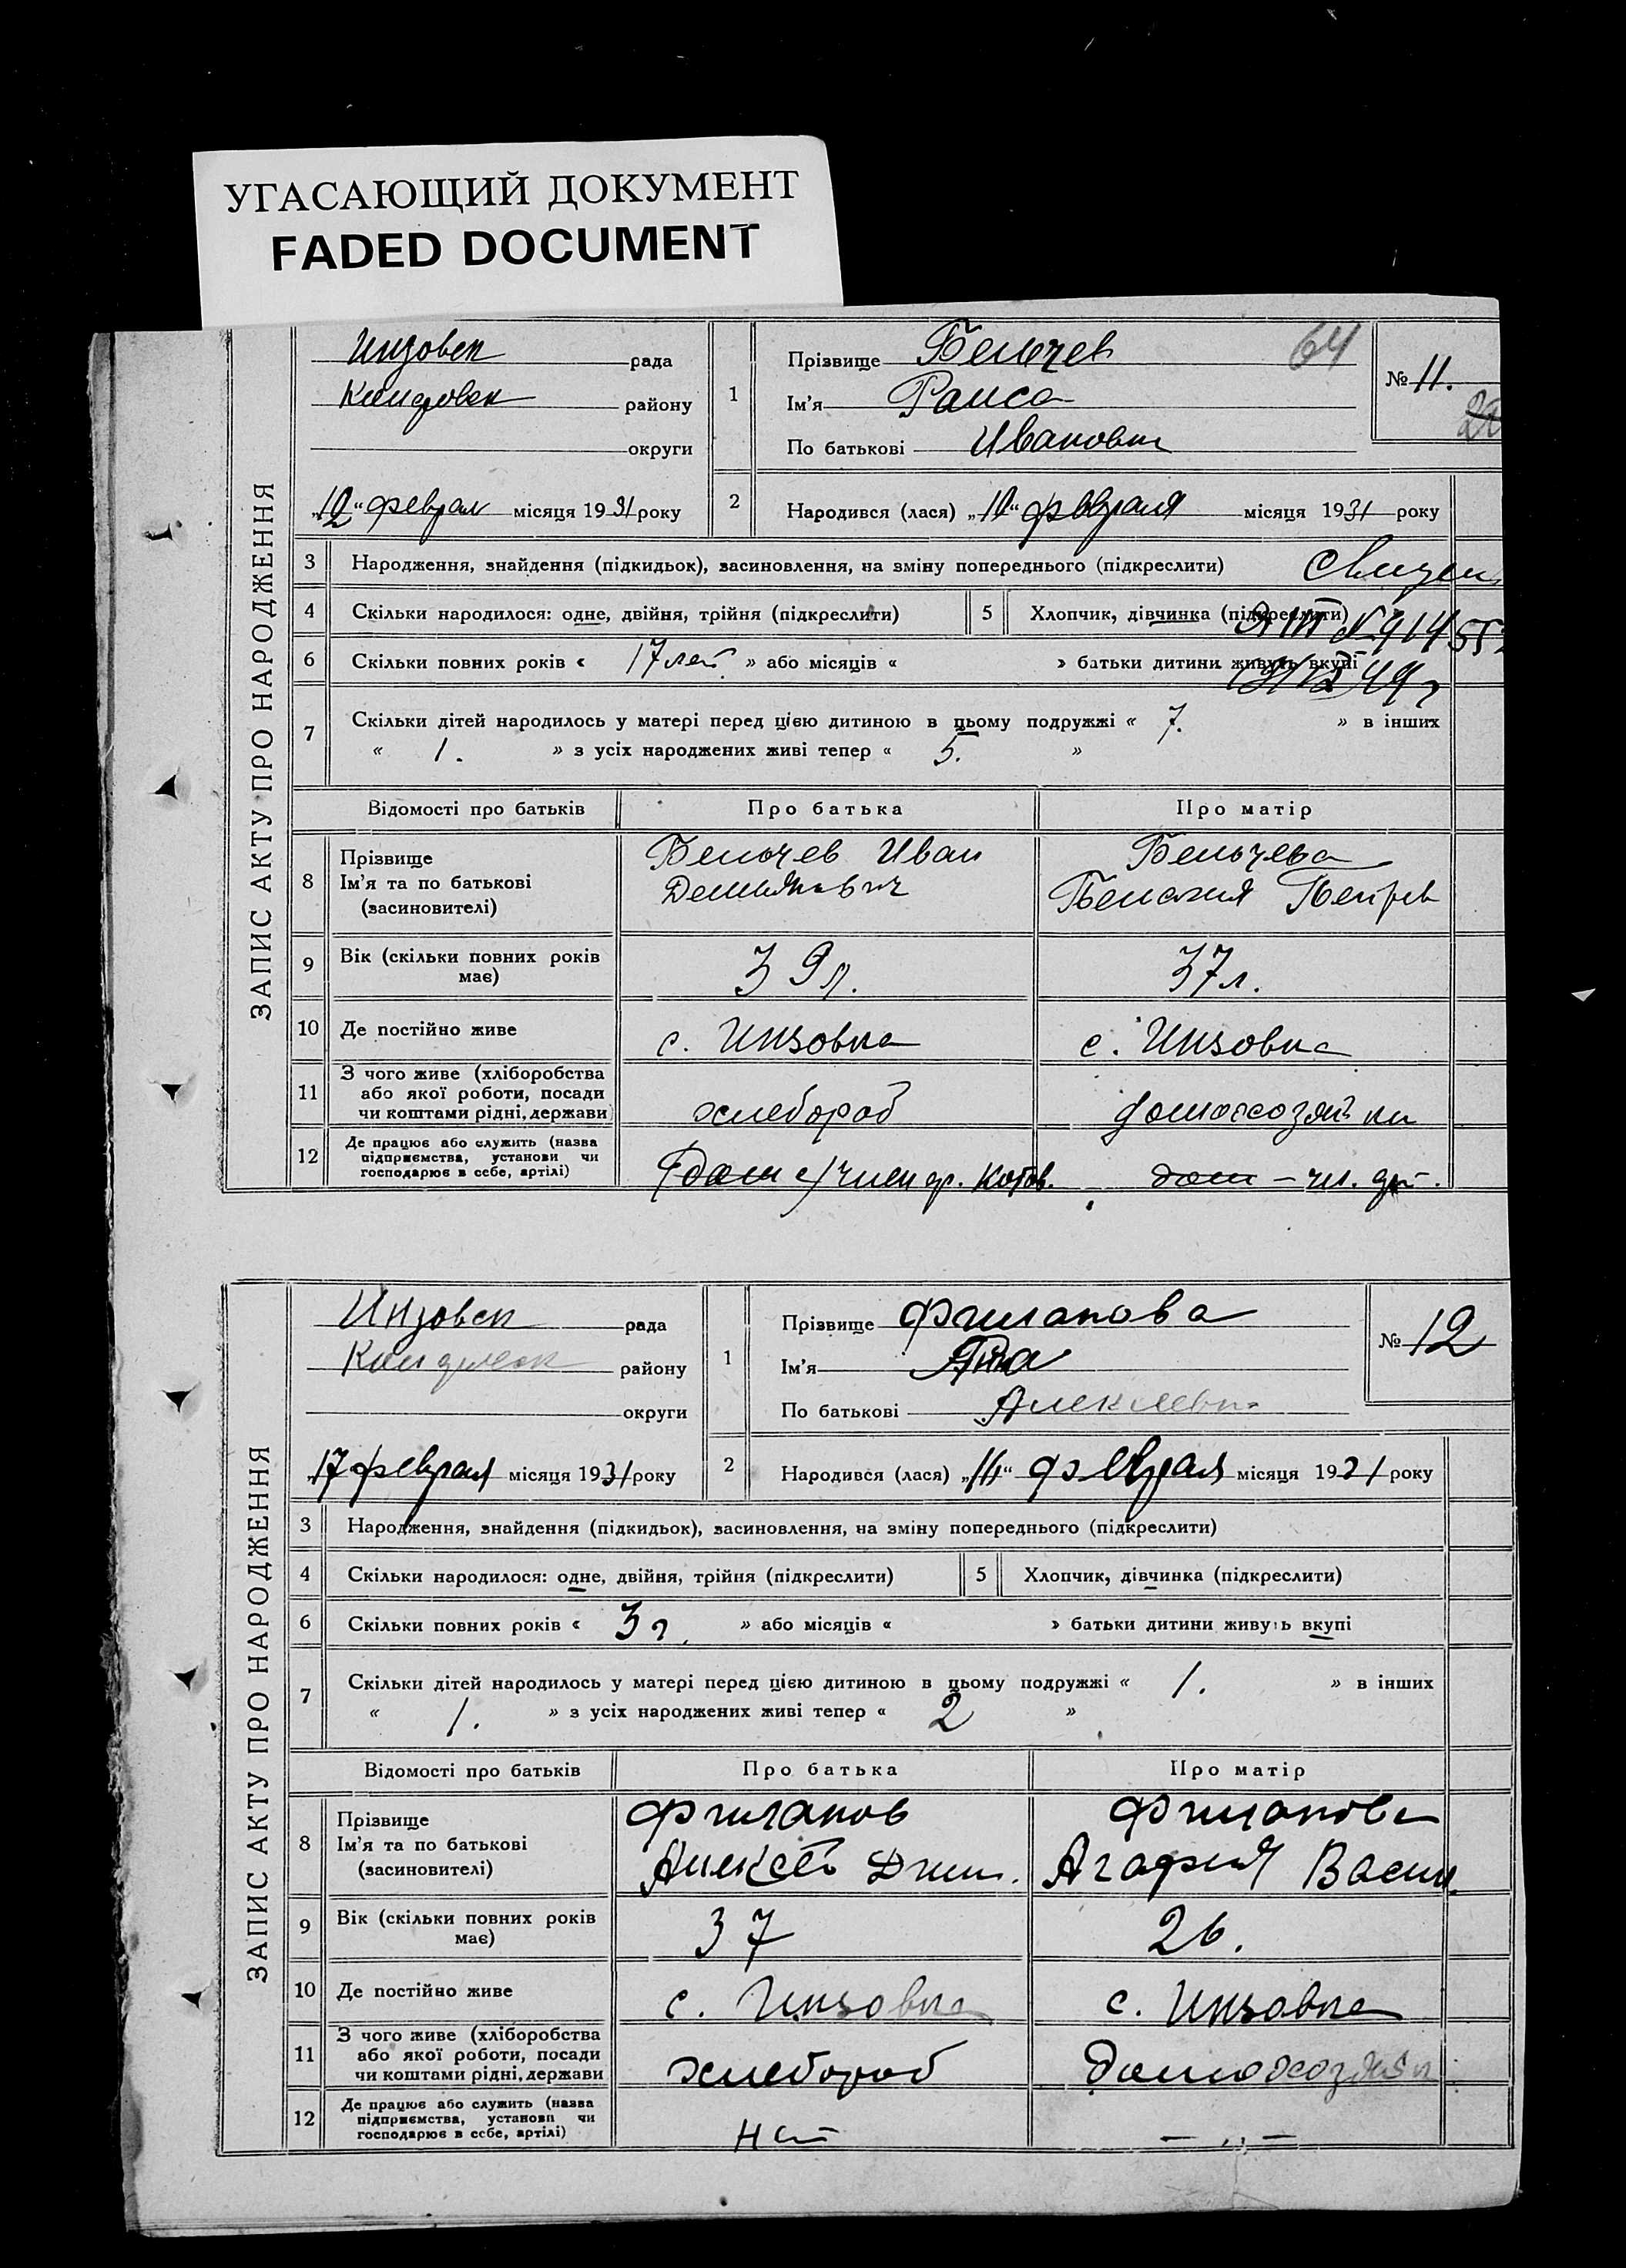 УГАСАЮЩИЙ ДОКУМЕНТ
FADED DOCUMENT
ЗАПИС АКТУ ПРО НАРОДЖЕННЯ
Инзовск рада
району
округи
"12" феврал місяця 1931 року
1
Прізвище Бельчев
Ім'я Раиса
По батькові Ивановн
64
№ 11.
2
Народився (лася) „10“ февраля місяця 1931 року
3 Народження, знайдення (підкидьок), засиновлення, на зміну попереднього (підкреслити)
4 Скільки народилося: одне, двійня, трійня (підкреслити)
5 Хлопчик, дівчинка (підкреслити)
6 Скільки повних років « 17 лет » або місяців « » батьки дитини живуть вкупі
7 Скільки дітей народилось у матері перед цією дитиною в цьому подружжі « 7. » в інших
« 1. » з усіх народжених живі тепер « 5. »
Відомості про батьків Про батька Про матір
8 Прізвище
Ім'я та по батькові
(засиновителі)
Бельчев Иван
Демьянович
Бельчева
Петров
9 Вік (скільки повних років
має)
39 л. 37 л.
10 Де постійно живе с. Инзовка с. Инзовка
11 З чого живе (хліборобства
або якої роботи, посади
чи коштами рідні, держави)
хлебороб домохозяйки
12 Де працює або служить (назва
підприємства, установи чи
господарює в себе, артілі)
ЗАПИС АКТУ ПРО НАРОДЖЕННЯ
Инзовск рада
району
округи
„17 февраля місяця 1931 року
1
Прізвище Филапова
Ім'я
По батькові Алексеевн
№ 12
2
Народився (лася) „16“ февраля місяця 1931 року
3 Народження, знайдення (підкидьок), засиновлення, на зміну попереднього (підкреслити)
4 Скільки народилося: одне, двійня, трійня (підкреслити)
5 Хлопчик, дівчинка (підкреслити)
6 Скільки повних років « 3 г. » або місяців « » батьки дитини живуть вкупі
7 Скільки дітей народилось у матері перед цією дитиною в цьому подружжі « 1. » в інших
« 1. » з усіх народжених живі тепер « 2 »
Відомості про батьків Про батька Про матір
8 Прізвище
Ім'я та по батькові
(засиновителі)
Филапов
Алексей Дми.
Филапова
Агафия Васил.
9 Вік (скільки повних років
має)
37 26.
10 Де постійно живе с. Инзовка с. Инзовка
11 З чого живе (хліборобства
або якої роботи, посади
чи коштами рідні, держави
хлебороб домохозяйк
12 Де працює або служить (назва
підприємства, установи чи
господарює в себе, артілі)
нет — „ —